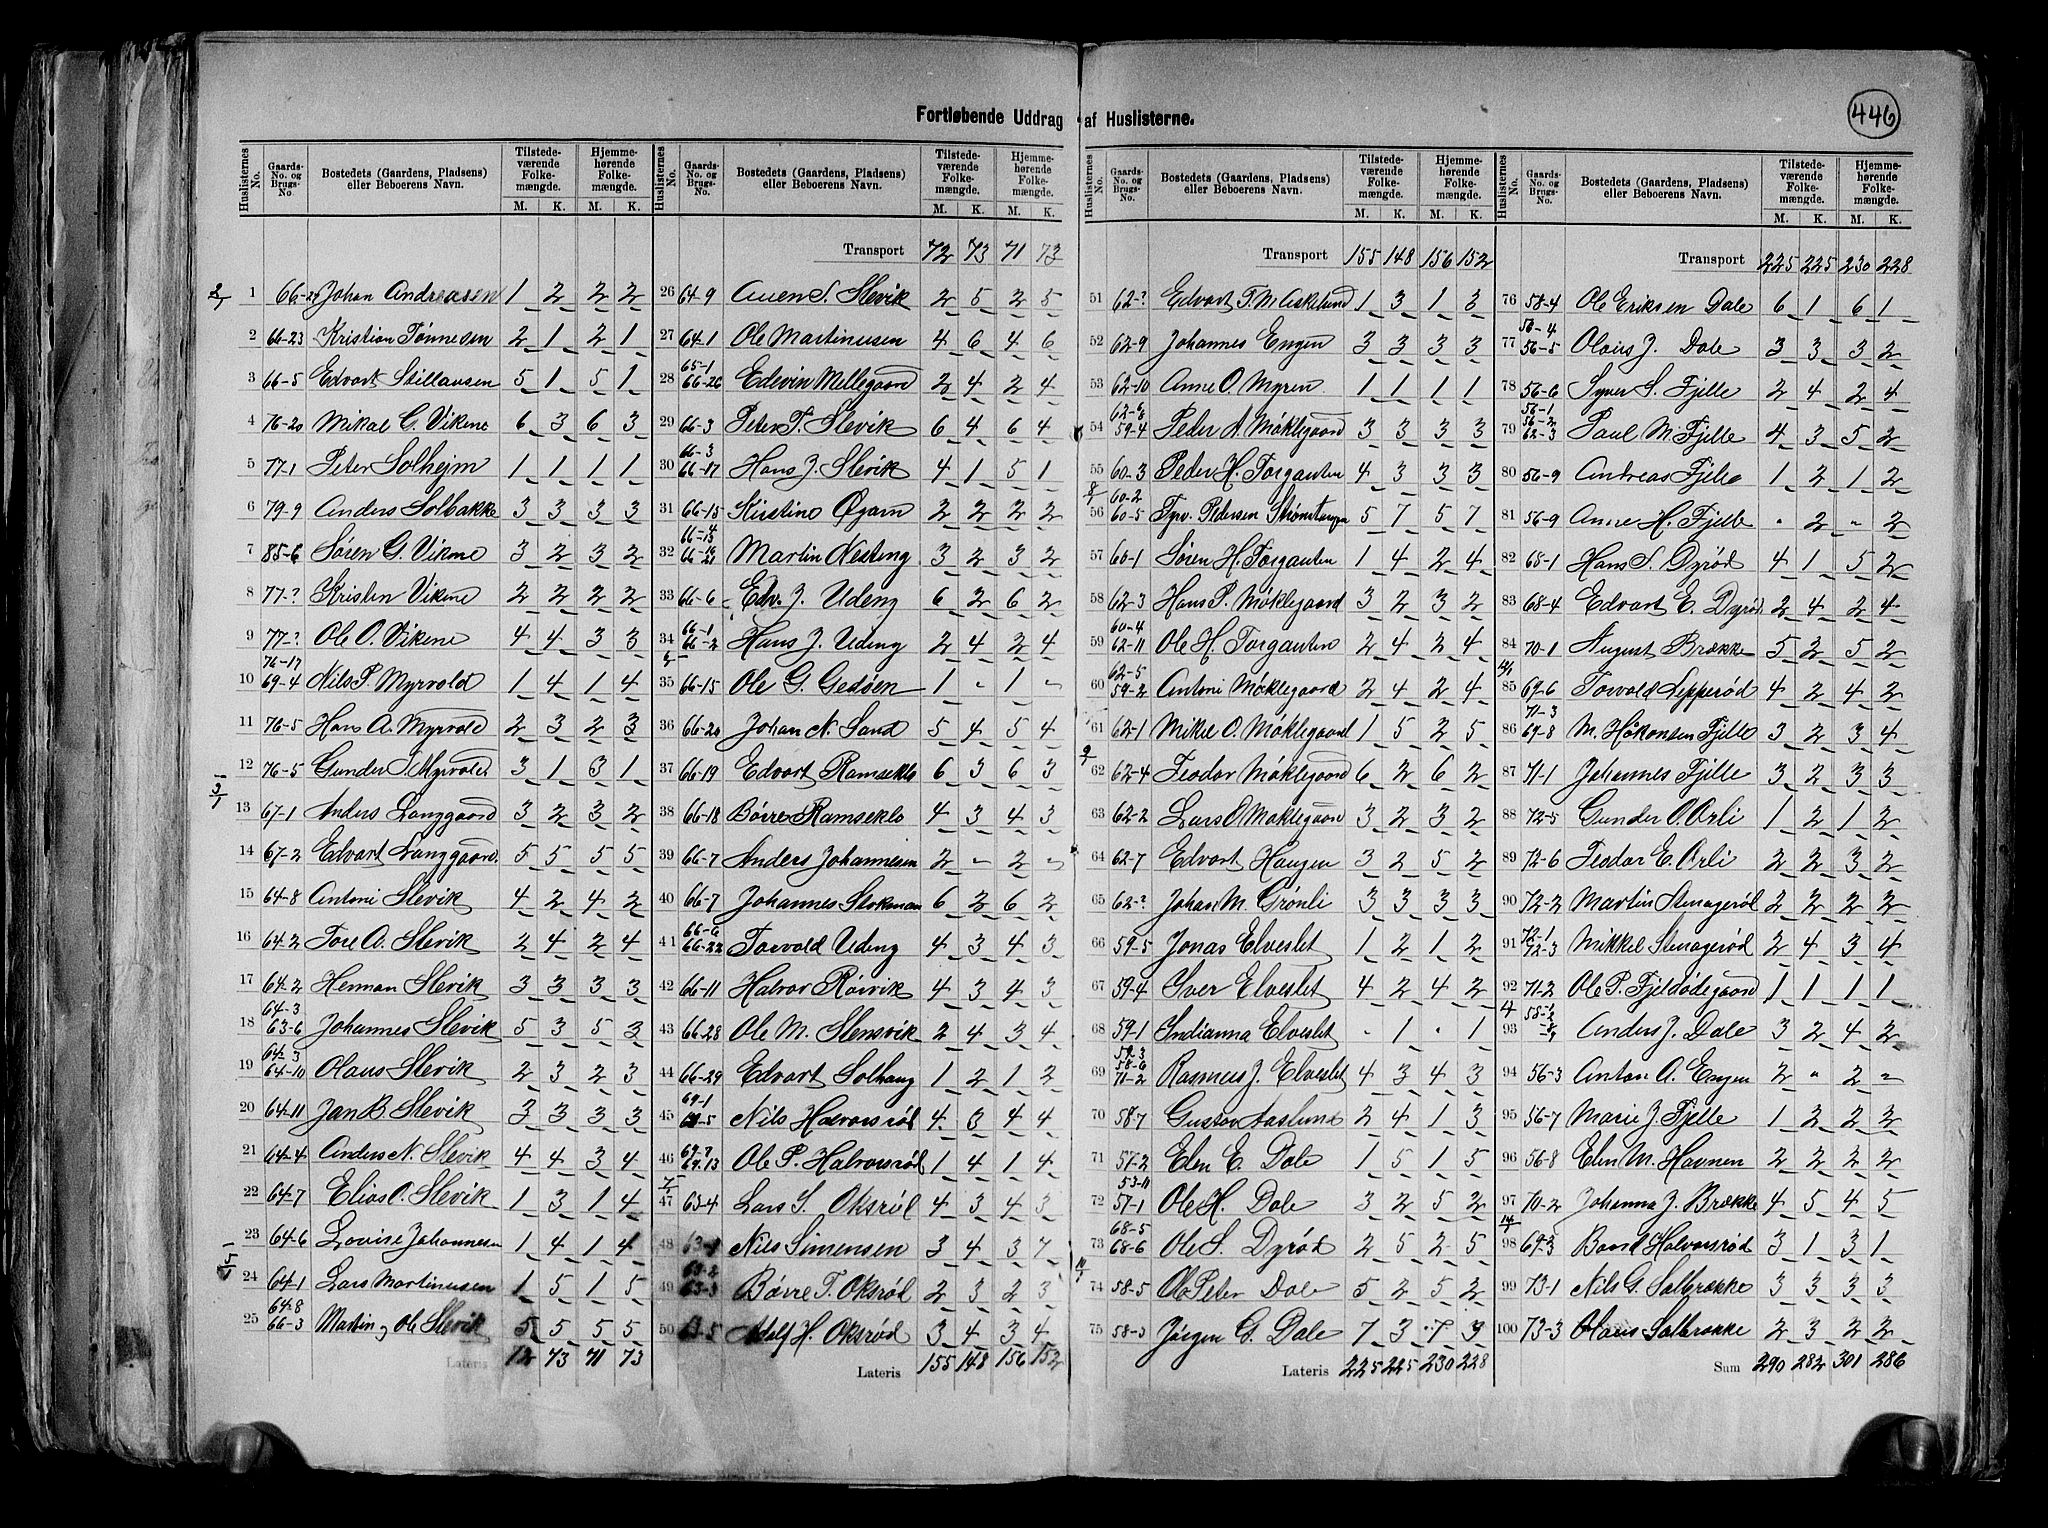 446
Fortløbende Uddrag af Huslisterne.
Huslisternes No. Gaards-No. og Brugs-No. Bostedets (Gaardens, Pladsens) eller Beboerens Navn. Tilstedeværende Folkemængde. M. K. Hjemmehørende Folkemængde. M. K.
1 66-24 Johan Andreasen 1 2 2 2
2 66-23 Kristian Tønnesen 2 1 2 1
3 66-5 Edvart Stillausen 5 1 5 1
4 76-20 Mikal G. Vikene 6 3 6 3
5 77-1 Peter Solhejm 1 1 1 1
6 79-9 Anders Solbakke 3 3 3 3
7 85-6 Søren G. Vikene 3 2 3 2
8 77-? Kristen Vikene 2 2 2 2
9 77-? Ole O. Vikene 4 4 3 3
10 76-17 69-4 Nils P. Myrvold 1 4 1 4
11 76-5 Hans A. Myrvold 2 3 2 3
12 76-5 Gunder S. Myrvold 3 1 3 1
13 67-1 Anders Langgaard 3 2 3 2
14 67-2 Edvart Langgaard 5 5 5 5
15 64-8 Antoni Slevik 4 2 4 2
16 64-2 Tore A. Slevik 2 4 2 4
17 64-2 Herman Slevik 3 3 3 3
18 64-3 63-6 Johannes Slevik 5 3 5 3
19 64-3 64-10 Olaus Slevik 2 3 2 3
20 64-11 Jan B. Slevik 3 3 3 3
21 64-4 Anders N. Slevik 4 4 3 4
22 64-7 Elias O. Slevik 1 3 1 4
23 64-6 Lovise Johannesen 1 4 1 4
24 64-1 Lars Martinusen 1 5 1 5
25 64-8 66-3 Martin og Ole Slevik 5 5 5 5
Lateris 72 73 71 73
Huslisternes No. Gaards-No. og Brugs-No. Bostedets (Gaardens, Pladsens) eller Beboerens Navn. Tilstedeværende Folkemængde. M. K. Hjemmehørende Folkemængde. M. K.
Transport 72 73 71 73
26 64-9 Auen S. Slevik 2 5 2 5
27 64-1 Ole Martinusen 4 6 4 6
28 65-1 66-26 Edevin Mellegaard 2 4 2 4
29 66-3 Peter T. Slevik 6 4 6 4
30 66-3 66-17 Hans J. Slevik 4 1 5 1
31 66-15 Kirstine Øgarn 2 2 2 2
32 66-4 66-13 Martin Nesteng 3 2 3 2
33 66-6 Edv. J. Udeng 6 2 6 2
34 66-1 66-2 Hans J. Udeng 2 4 2 4
35 66-15 Ole G. Gedøen 1 - 1 -
36 66-20 Johan N. Sand 5 4 5 4
37 66-19 Edvart Ramseklo 6 3 6 3
38 66-18 Børre Ramseklo 4 3 4 3
39 66-7 Anders Johannesen 2 - 2 -
40 66-7 Johannes Stokman 6 2 6 2
41 66-6 66-22 Torvald Udeng 4 3 4 3
42 66-11 Halvor Røivik 4 3 4 3
43 66-28 Ole M. Stensvik 2 4 3 4
44 66-29 Edvart Solhaug 1 2 1 2
45 69-1 Nils Halvorsrød 4 3 4 4
46 69-7 69-13 Ole P. Halvorsrød 1 4 1 4
47 63-4 Lars S. Oksrød 4 3 4 3
48 63-1 Nils Simensen 3 4 3 4
49 63-2 63-3 Børre T. Oksrød 2 3 2 3
50 63-5 Adolf H. Oksrød 3 4 3 4
Lateris 155 148 156 152
Huslisternes No. Gaards-No. og Brugs-No. Bostedets (Gaardens, Pladsens) eller Beboerens Navn. Tilstedeværende Folkemængde. M. K. Hjemmehørende Folkemængde. M. K.
Transport 155 148 156 152
51 62-? Edvart T. M. Asklund 1 3 1 3
52 62-9 Johannes Engen 3 3 3 3
53 62-10 Anne O. Myren 1 1 1 1
54 62-6 59-4 Peder A. Møklegaard 3 3 3 3
55 60-3 Peder H. Torgauten 4 3 3 3
56 60-2 60-5 Pedersen Strømtangen 5 7 5 7
57 60-1 Søren H. Torgauten 1 4 2 4
58 62-3 Hans P. Møklegaard 3 2 3 2
59 60-4 62-11 Ole H. Torgauten 2 4 2 4
60 62-5 59-2 Antoni Møklegaard 2 4 2 4
61 62-1 Mikel O. Møklegaard 1 5 2 5
62 62-4 Teodor Møklegaard 6 2 6 2
63 62-2 Lars O. Møklegaard 3 2 3 2
64 62-7 Edvart Haugen 3 2 5 2
65 62-? Johan M. Grønli 3 3 3 3
66 59-5 Jonas Elveslet 1 2 1 2
67 59-4 Iver Elveslet 4 2 4 2
68 59-1 Indianna Elveslet - 1 - 1
69 59-3 58-6 71-2 Rasmus J. Elveslet 4 3 4 3
70 58-7 Gustav Aaslund 2 4 1 3
71 57-2 Elen E. Dale 1 5 1 5
72 53-11 57-1 Ole H. Dale 3 2 5 2
73 68-5 68-6 Ole S. Dyrød 2 5 2 5
74 58-5 Ole Peter Dale 5 2 5 2
75 58-3 Jørgen G. Dale 7 3 7 3
Lateris 225 225 230 228
Huslisternes No. Gaards-No. og Brugs-No. Bostedets (Gaardens, Pladsens) eller Beboerens Navn. Tilstedeværende Folkemængde. M. K. Hjemmehørende Folkemængde. M. K.
Transport 225 225 230 228
76 58-4 Ole Eriksen Dale 6 1 6 1
77 56-4 56-5 Olaus J. Dale 3 3 3 2
78 56-6 Syver S. Fjelle 2 4 2 4
79 56-1 56-2 62-3 Paul M. Fjelle 4 3 5 2
80 56-9 Andreas Fjelle 1 2 1 2
81 56-9 Anne H. Fjelle - 2 - 2
82 68-1 Hans S. Dyrød 4 1 5 2
83 68-4 Edvart E. Dyrød 2 4 2 4
84 70-1 August Brække 5 2 5 2
85 69-6 Torvald Lepperød 4 2 4 2
86 71-3 69-8 M. Håkonsen Fjelle 3 2 3 4
87 71-1 Johannes Fjelle 3 2 3 3
88 72-5 Gunder O. Ørli 1 2 1 2
89 72-6 Teodor E. Ørli 2 2 3 2
90 72-2 Martin Stenagerød 2 2 2 2
91 72-1 72-3 Mikkel Stenagerød 2 4 3 4
92 71-2 Ole P. Fjeldødegaard 1 1 1 1
93 58-2 Anders J. Dale 3 2 4 2
94 56-3 Anton A. Engen 2 - 2 -
95 56-7 Marie J. Fjelle 1 2 2 2
96 56-8 Elen M. Havnen 2 2 2 2
97 70-2 Johanna J. Brække 4 5 4 5
98 69-3 Baard Halvorsrød 3 1 3 1
99 73-1 Nils G. Salbrække 3 3 3 3
100 73-3 Olaus Salbrække 2 3 2 2
Sum 290 282 301 286